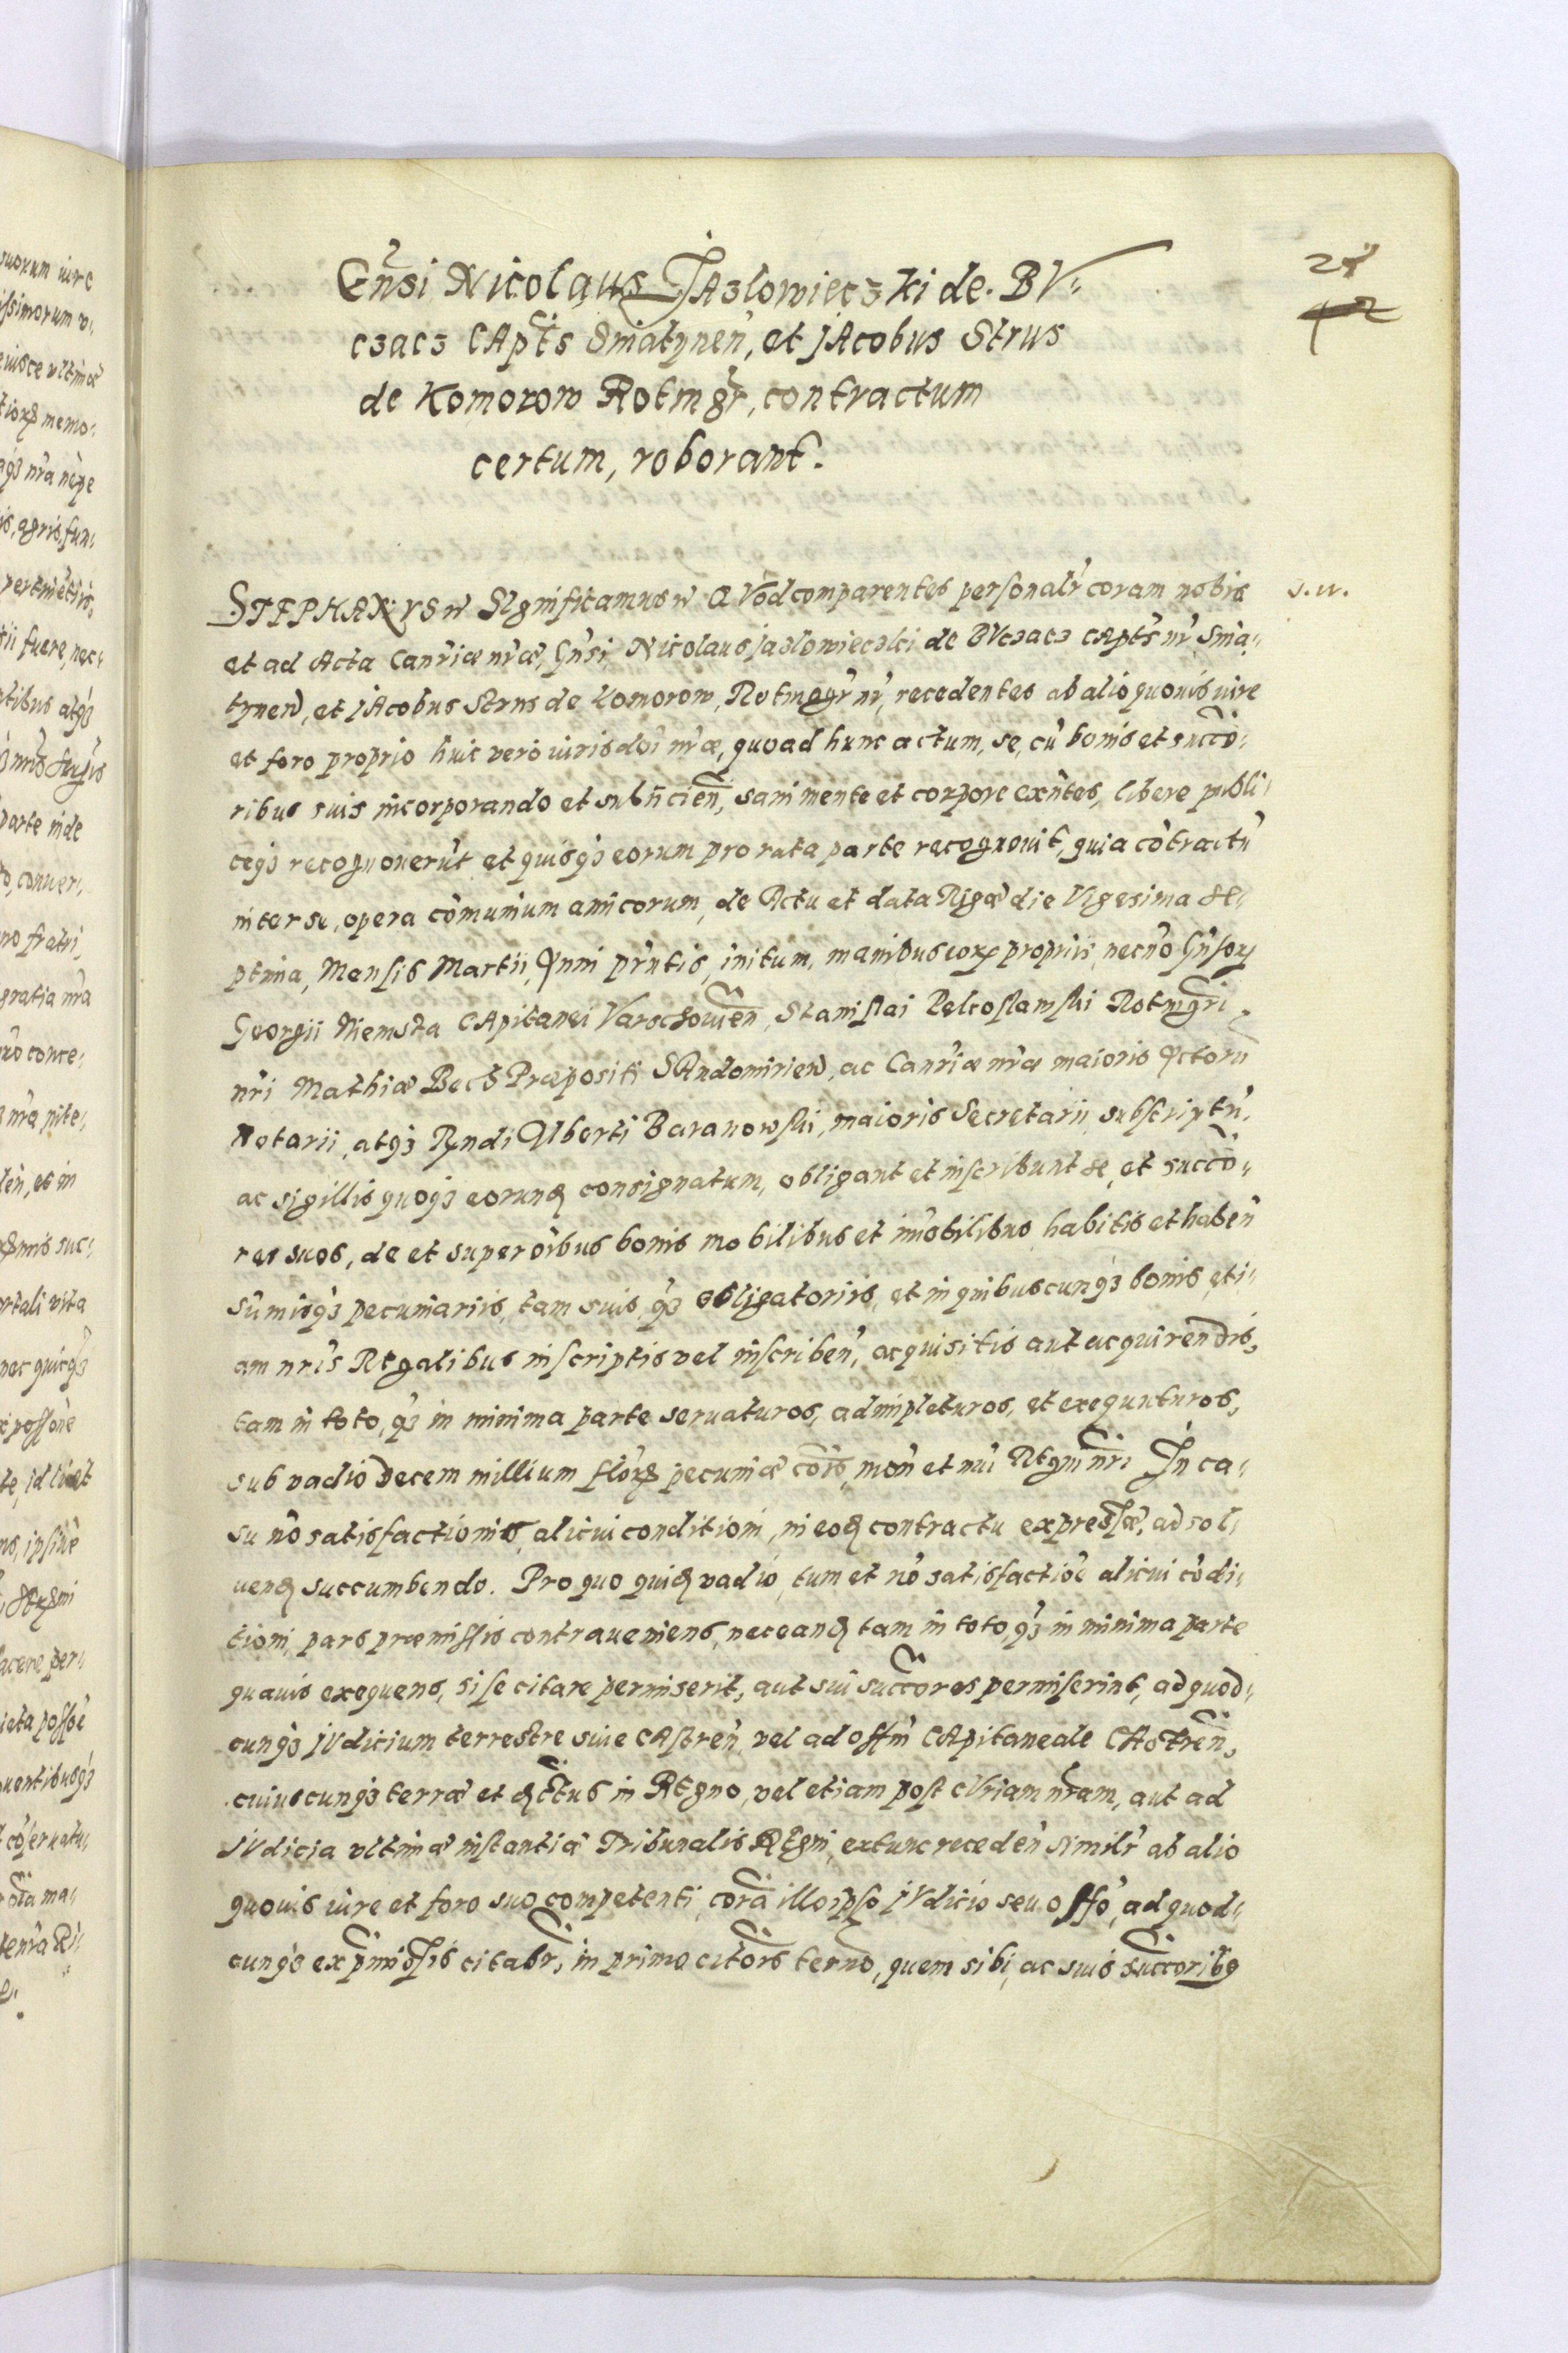 Gnsi Nicolaus JAzlowieczki de BV-
czacz CApts Sniatynen, et JAcobus Strus
de Komorow Rotmgr, contractum
certum, roborant.
STEPHANVS Significamus Quod comparentes personalr coram nobis
et ad Acta Canriæ nræ, Gnsi Nicolaus Jazlowieczki de BVczacz CApts nr Snia-
tynen, et JAcobus Strus de Komorow, Rotmgr nr, recedentes ab alio quouis iure
et foro proprio huic vero iurisdoi nræ, quoad hunc actum, se, cu bonis et succo-
ribus suis incorporando et subiicien, sani mente et corpore exntes, libere publi-
ceqz recognouerut et quisqz eorum pro rata parte recognouit, quia cotractu
inter se, opera comunium amicorum, de Actu et data Rigæ die Vigesima se-
ptima, Mensis Martii, Anni prntis, initum, manibus eorx propriis, necno Gnsorx
Georgii Niemsta CApitanei Varschouien, Stanislai Pekoslawski Rotmgri
nri Mathiæ Bech Præpositi SAndomirien, ac Canriæ nræ maioris Actoru
Notarii, atqz Rndi Alberti Baranowski, maioris Secretarii, subscriptu,
ac sigillis quoqz eorund consignatum, obligant et inscribunt se, et succo-
res suos, de et super oibus bonis mobilibus et imobilibus habitis et haben
sumisqz pecuniariis, tam suis, qz obligatoriis, et in quibuscunqz bonis, eti-
am nris Regalibus inscriptis vel inscriben, acquisitis aut acquirendis,
tam in toto, qz in minima parte seruaturos, adimpleturos, et exequuturos,
sub vadio Decem millium florx pecuniæ cois, mon et nui Regni nri In ca-
su no satisfactionis, alicui conditioni, in eod contractu expressæ, ad sol-
uend succumbendo. Pro quo quid vadio, tum et no satisfactioe alicui codi-
tioni, pars præmissis contraueniens, nec eand tam in toto, qz in minima parte
quauis exequens, si se citare permiserit, aut sui succores permiserint, ad quod-
cunqz JVdicium terrestre siue CAstren, vel ad offm CApitaneale CAstren,
cuiuscunqz terræ et dctus in REgno, vel etiam post CVriam nram, aut ad
JVdicia vltimæ instantiæ Tribunalis REgni, extunc receden similr ab alio
quouis iure et foro suo competenti, cora illo ipso JVdicio seu offo, ad quod-
cunqz ex pmissis citabr, in primo citois terno, quem sibi, ac suis succoribq